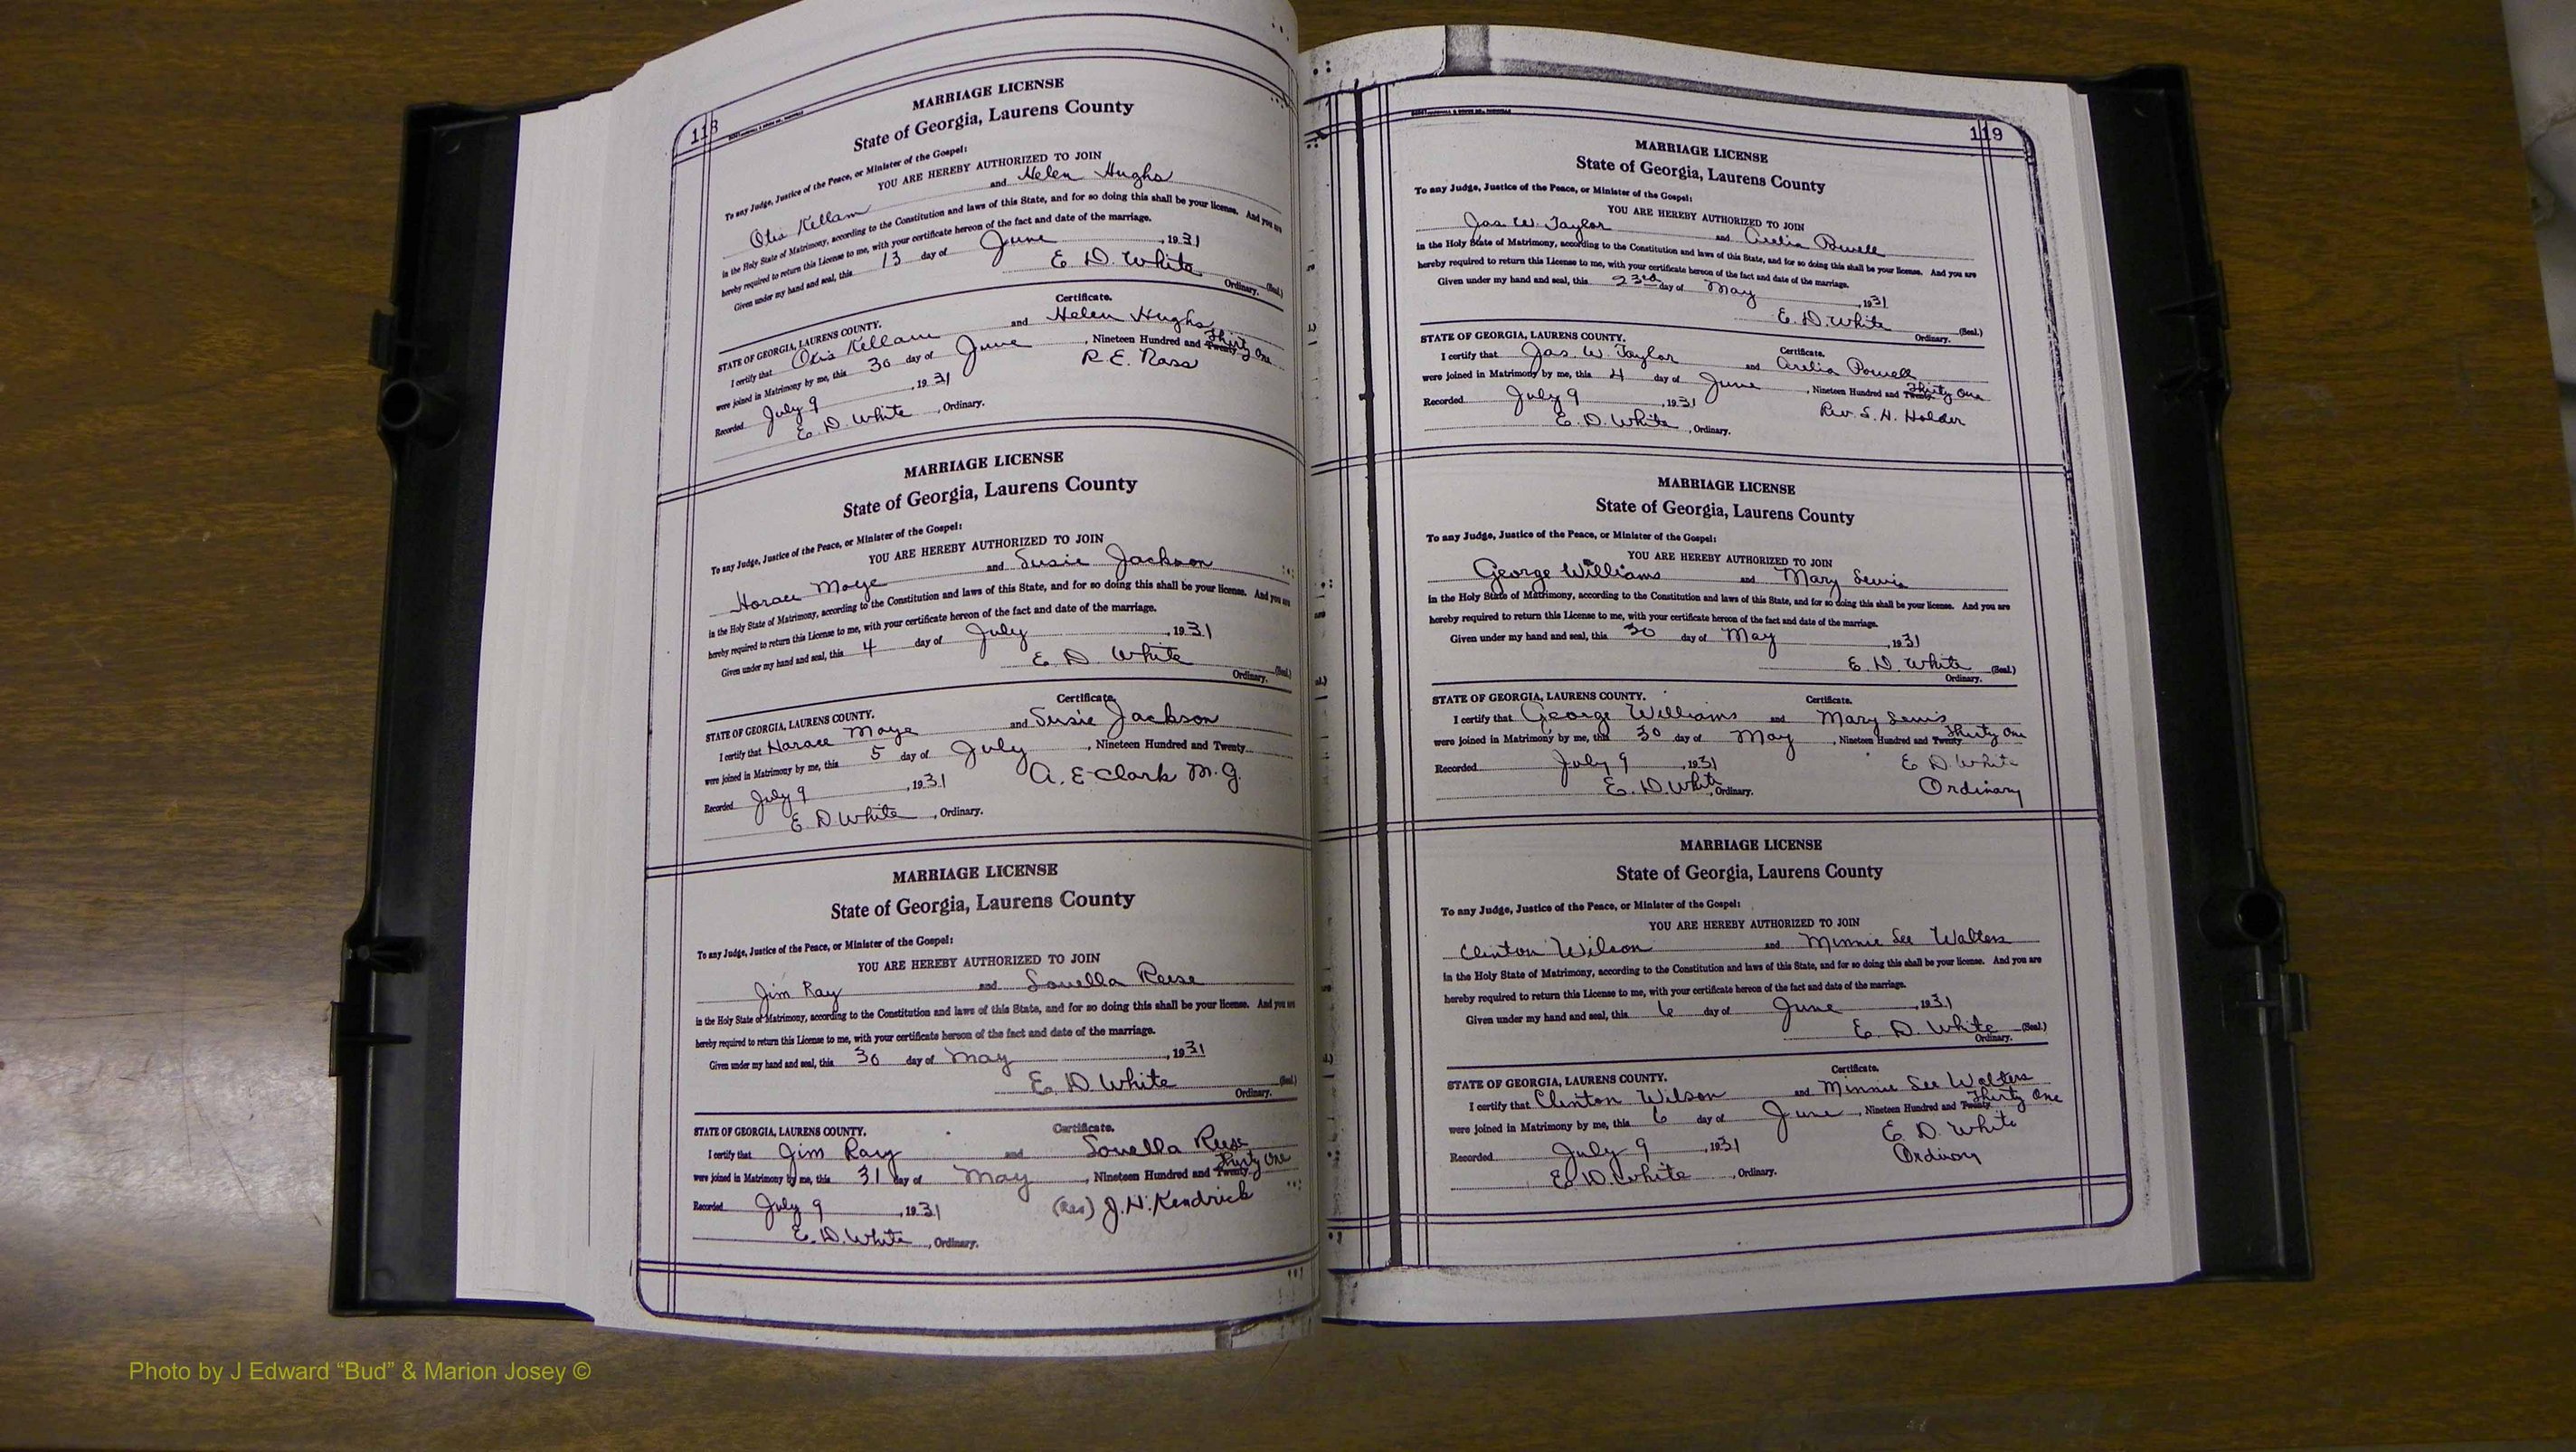 118
MARRIAGE LICENSE
State of Georgia, Laurens County
To any Judge, Justice of the Peace, or Minister of the Gospel:
YOU ARE HEREBY AUTHORIZED TO JOIN
Otis Kellam and Helen Hughs
in the Holy State of Matrimony, according to the Constitution and laws of this State, and for so doing this shall be your license. And you are
hereby required to return this License to me, with your certificate hereon of the fact and date of the marriage.
Given under my hand and seal, this 13 day of June, 1931
E. D. White (Seal.)
Ordinary.
Certificate.
STATE OF GEORGIA, LAURENS COUNTY.
I certify that Otis Kellam and Helen Hughs
were joined in Matrimony by me, this 30 day of June, Nineteen Hundred and Twenty Thirty One
Recorded July 9, 1931 R. E. Ross
E. D. White, Ordinary.
MARRIAGE LICENSE
State of Georgia, Laurens County
To any Judge, Justice of the Peace, or Minister of the Gospel:
YOU ARE HEREBY AUTHORIZED TO JOIN
Horace Moye and Susie Jackson
in the Holy State of Matrimony, according to the Constitution and laws of this State, and for so doing this shall be your license. And you are
hereby required to return this License to me, with your certificate hereon of the fact and date of the marriage.
Given under my hand and seal, this 4 day of July, 1931
E. D. White (Seal.)
Ordinary.
Certificate.
STATE OF GEORGIA, LAURENS COUNTY.
I certify that Horace Moye and Susie Jackson
were joined in Matrimony by me, this 5 day of July, Nineteen Hundred and Twenty
Recorded July 9, 1931 A. E. Clark M. G.
E. D. White, Ordinary.
MARRIAGE LICENSE
State of Georgia, Laurens County
To any Judge, Justice of the Peace, or Minister of the Gospel:
YOU ARE HEREBY AUTHORIZED TO JOIN
Jim Ray and Louella Reese
in the Holy State of Matrimony, according to the Constitution and laws of this State, and for so doing this shall be your license. And you are
hereby required to return this License to me, with your certificate hereon of the fact and date of the marriage.
Given under my hand and seal, this 30 day of May, 1931
E. D. White (Seal.)
Ordinary.
Certificate.
STATE OF GEORGIA, LAURENS COUNTY.
I certify that Jim Ray and Louella Reese
were joined in Matrimony by me, this 31 day of May, Nineteen Hundred and Twenty Thirty One
Recorded July 9, 1931 (Rev) J. H. Kendrick
E. D. White, Ordinary.
119
MARRIAGE LICENSE
State of Georgia, Laurens County
To any Judge, Justice of the Peace, or Minister of the Gospel:
YOU ARE HEREBY AUTHORIZED TO JOIN
Jas. W. Taylor and Arelia Powell
in the Holy State of Matrimony, according to the Constitution and laws of this State, and for so doing this shall be your license. And you are
hereby required to return this License to me, with your certificate hereon of the fact and date of the marriage.
Given under my hand and seal, this 23rd day of May, 1931
E. D. White (Seal.)
Ordinary.
STATE OF GEORGIA, LAURENS COUNTY.
Certificate.
I certify that Jas. W. Taylor and Arelia Powell
were joined in Matrimony by me, this 4 day of June, Nineteen Hundred and Twenty Thirty One
Recorded July 9, 1931 Rev. S. H. Holder
E. D. White, Ordinary.
MARRIAGE LICENSE
State of Georgia, Laurens County
To any Judge, Justice of the Peace, or Minister of the Gospel:
YOU ARE HEREBY AUTHORIZED TO JOIN
George Williams and Mary Lewis
in the Holy State of Matrimony, according to the Constitution and laws of this State, and for so doing this shall be your license. And you are
hereby required to return this License to me, with your certificate hereon of the fact and date of the marriage.
Given under my hand and seal, this 30 day of May, 1931
E. D. White (Seal.)
Ordinary.
STATE OF GEORGIA, LAURENS COUNTY.
Certificate.
I certify that George Williams and Mary Lewis
were joined in Matrimony by me, this 30 day of May, Nineteen Hundred and Twenty Thirty One
Recorded July 9, 1931 E. D. White
E. D. White, Ordinary. Ordinary
MARRIAGE LICENSE
State of Georgia, Laurens County
To any Judge, Justice of the Peace, or Minister of the Gospel:
YOU ARE HEREBY AUTHORIZED TO JOIN
Clinton Wilson and Minnie Lee Walters
in the Holy State of Matrimony, according to the Constitution and laws of this State, and for so doing this shall be your license. And you are
hereby required to return this License to me, with your certificate hereon of the fact and date of the marriage.
Given under my hand and seal, this 6 day of June, 1931
E. D. White (Seal.)
Ordinary.
Certificate.
STATE OF GEORGIA, LAURENS COUNTY.
I certify that Clinton Wilson and Minnie Lee Walters
were joined in Matrimony by me, this 6 day of June, Nineteen Hundred and Twenty Thirty One
Recorded July 9, 1931 E. D. White
E. D. White, Ordinary. Ordinary
Photo by J Edward “Bud” & Marion Josey ©